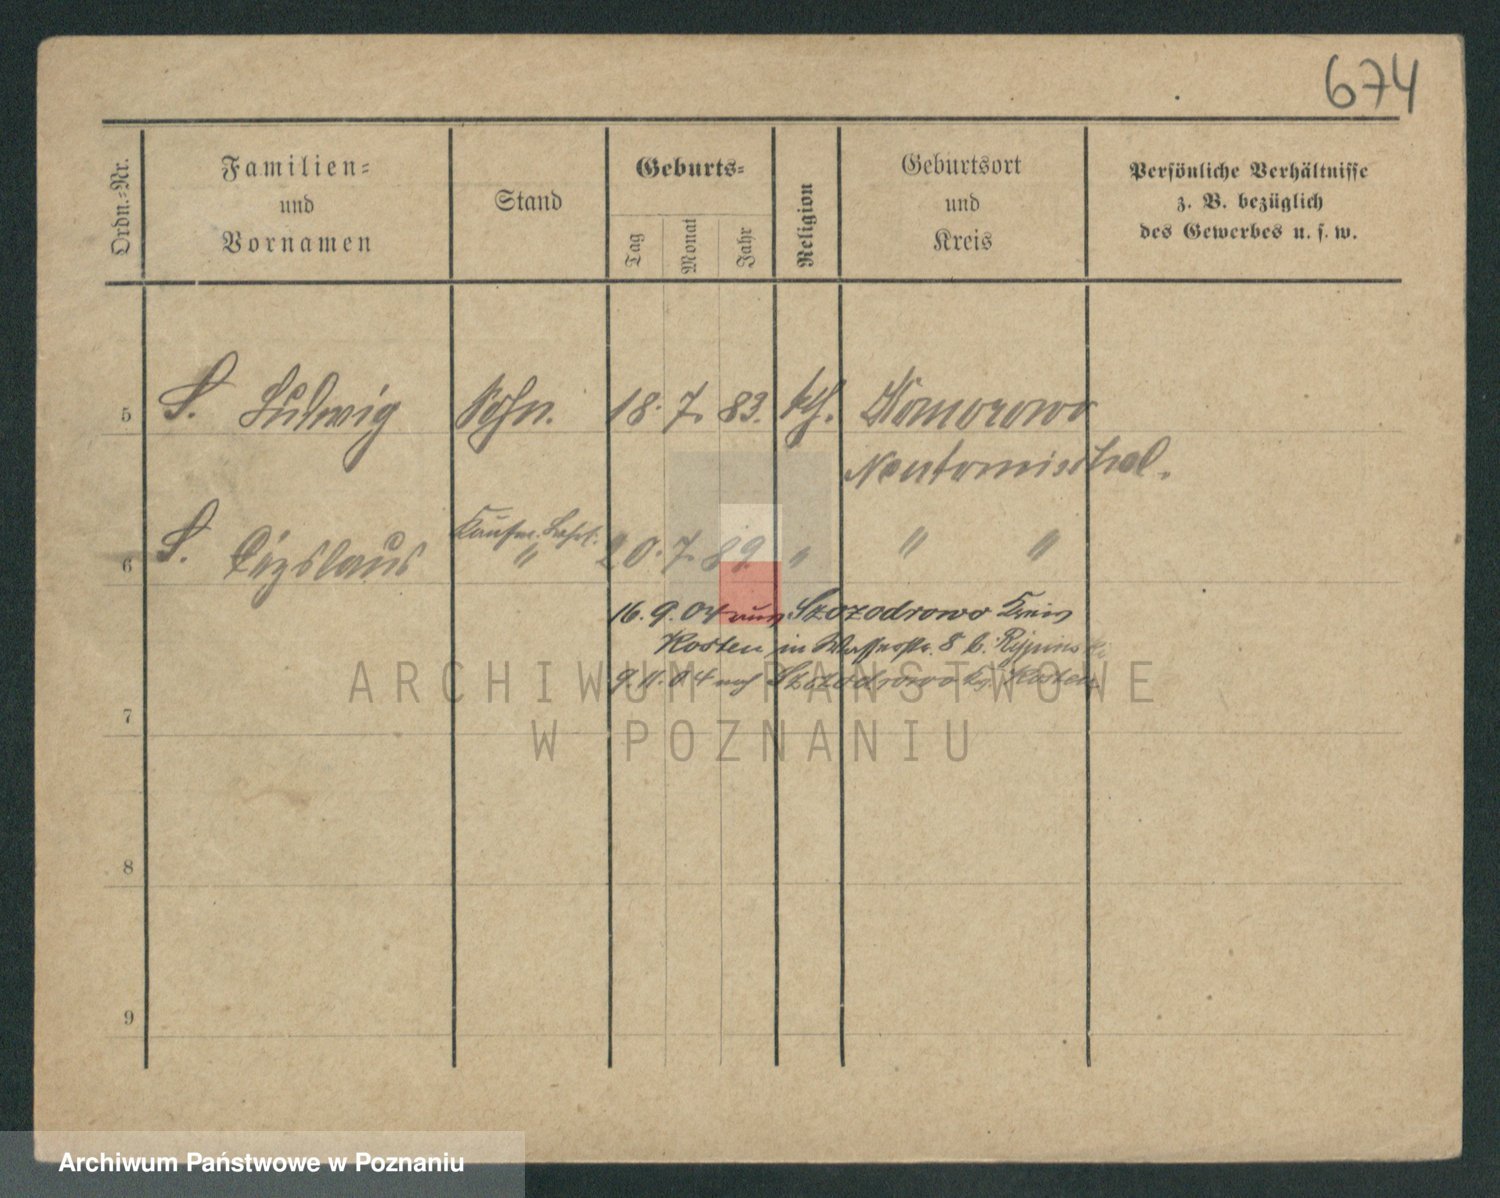 674
Ordn.-Nr.
Familien-
und
Vornamen
Stand
Geburts-
Tag
Monat
Jahr
Religion
Geburtsort
und
Kreis
Persönliche Verhältnisse
z. B. bezüglich
des Gewerbes u. s. w.
5 S. Ludwig Sohn. 18. 7. 83. kth. Komorowo
Neutomischel.
Kaufm. Lehrl.
6 S. Cizslaus " 20. 7. 89. " " "
16. 9. 04 aus Szczodrowo Kreis
Kosten in Wasserstr. 8 b. Rypinski
9. 11. 04 nach Szczodrowo Kr. Kosten
7
8
9
ARCHIWUM PAŃSTWOWE
W POZNANIU
Archiwum Państwowe w Poznaniu